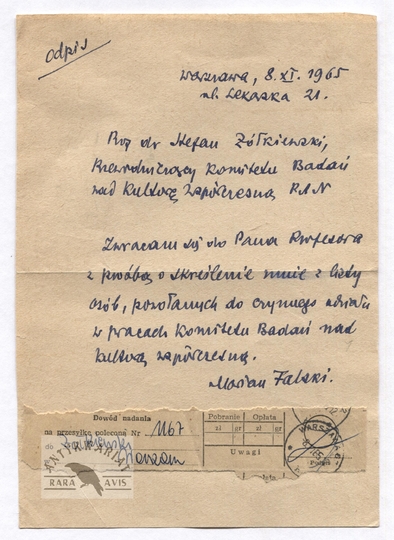 odpis
Warszawa, 8. XI. 1965
ul. Lekarska 21.
Prof dr Stefan Żółkiewski,
Przewodniczący Komitetu Badań
nad Kulturą Współczesną PAN
Zwracam się do Pana Profesora
z prośbą o skreślenie mnie z listy
osób, powołanych do czynnego udziału
w pracach Komitetu Badań nad
kulturą współczesną.
Marian Falski.
Dowód nadania
na przesyłkę poleconą Nr 1167
do
Pobranie Opłata
zł gr zł gr
Uwagi
WARSZAWA
ANTYKWARIAT
RARA AVIS